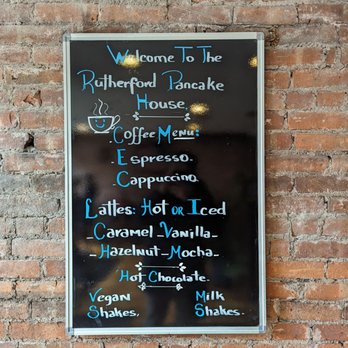 Welcome To The
Rutherford Pancake
House.
Coffee Menu:
.Espresso.
.Cappuccino.
Lattes: Hot or Iced
-Caramel-Vanilla-
-Hazelnut-Mocha-
Hot Chocolate.
Vegan Shakes,
Milk Shakes.